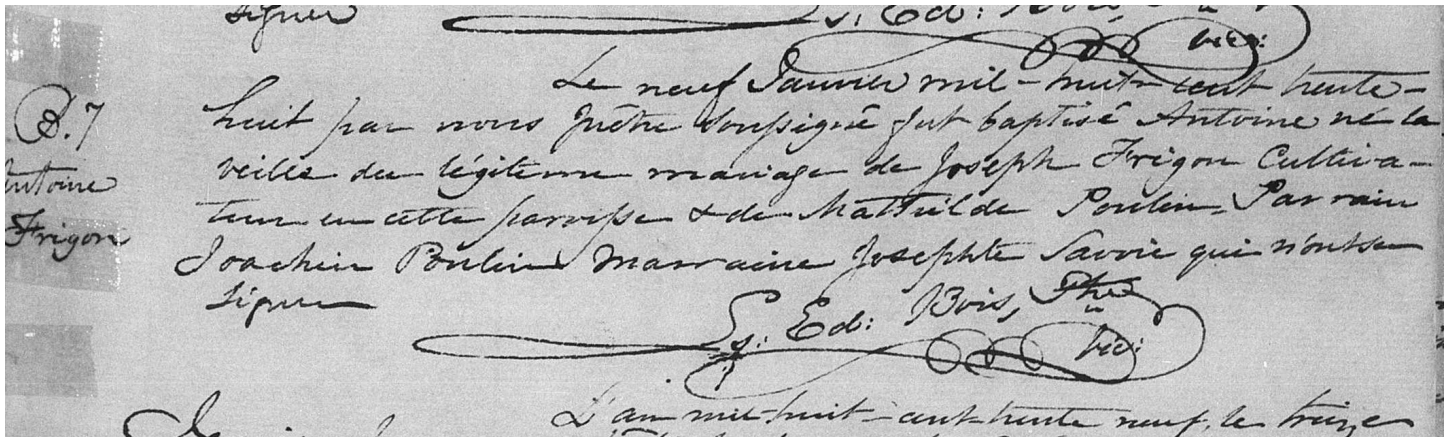 signer
Ls. Ed: Bois,
vic:
Le neuf Janvier mil-huit-cent trente-
B. 7
huit par nous Prêtre soussigné fut baptisé Antoine né la
veille du légitime mariage de Joseph Frigon Cultiva-
Antoine
teur en cette paroisse & de Mathilde Poulin. Parrain
Frigon
Joachin Poulin Marraine Josephte Savoie qui n'ont su
signer
Ls. Ed: Bois, Ptre
vic:
L'an mil-huit-cent-trente neuf, le treize